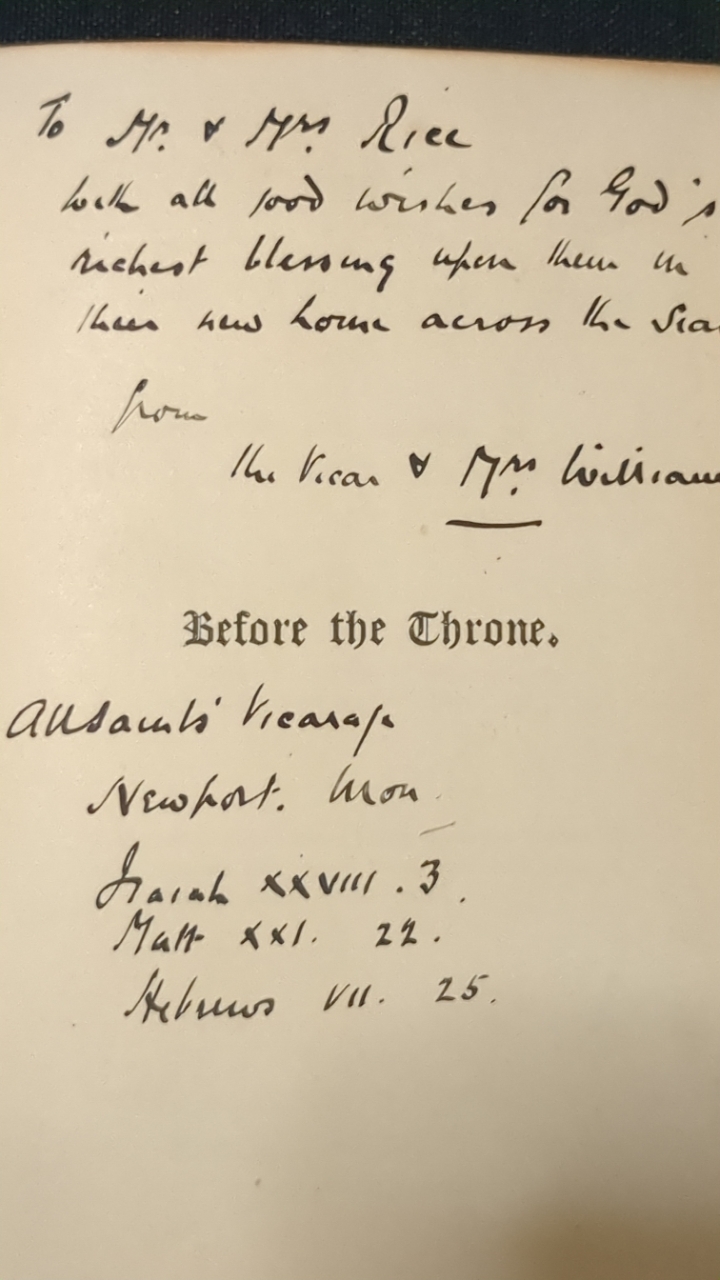 To Mr. & Mrs. Rice
with all good wishes for God's
richest blessing upon them in
their new home across the Sea
from
the Vicar & Mrs. William
Before the Throne.
All Saints' Vicarage
Newport. Mon
Isaiah XXVIII. 3.
Matt XXI. 22.
Hebrews VII. 25.